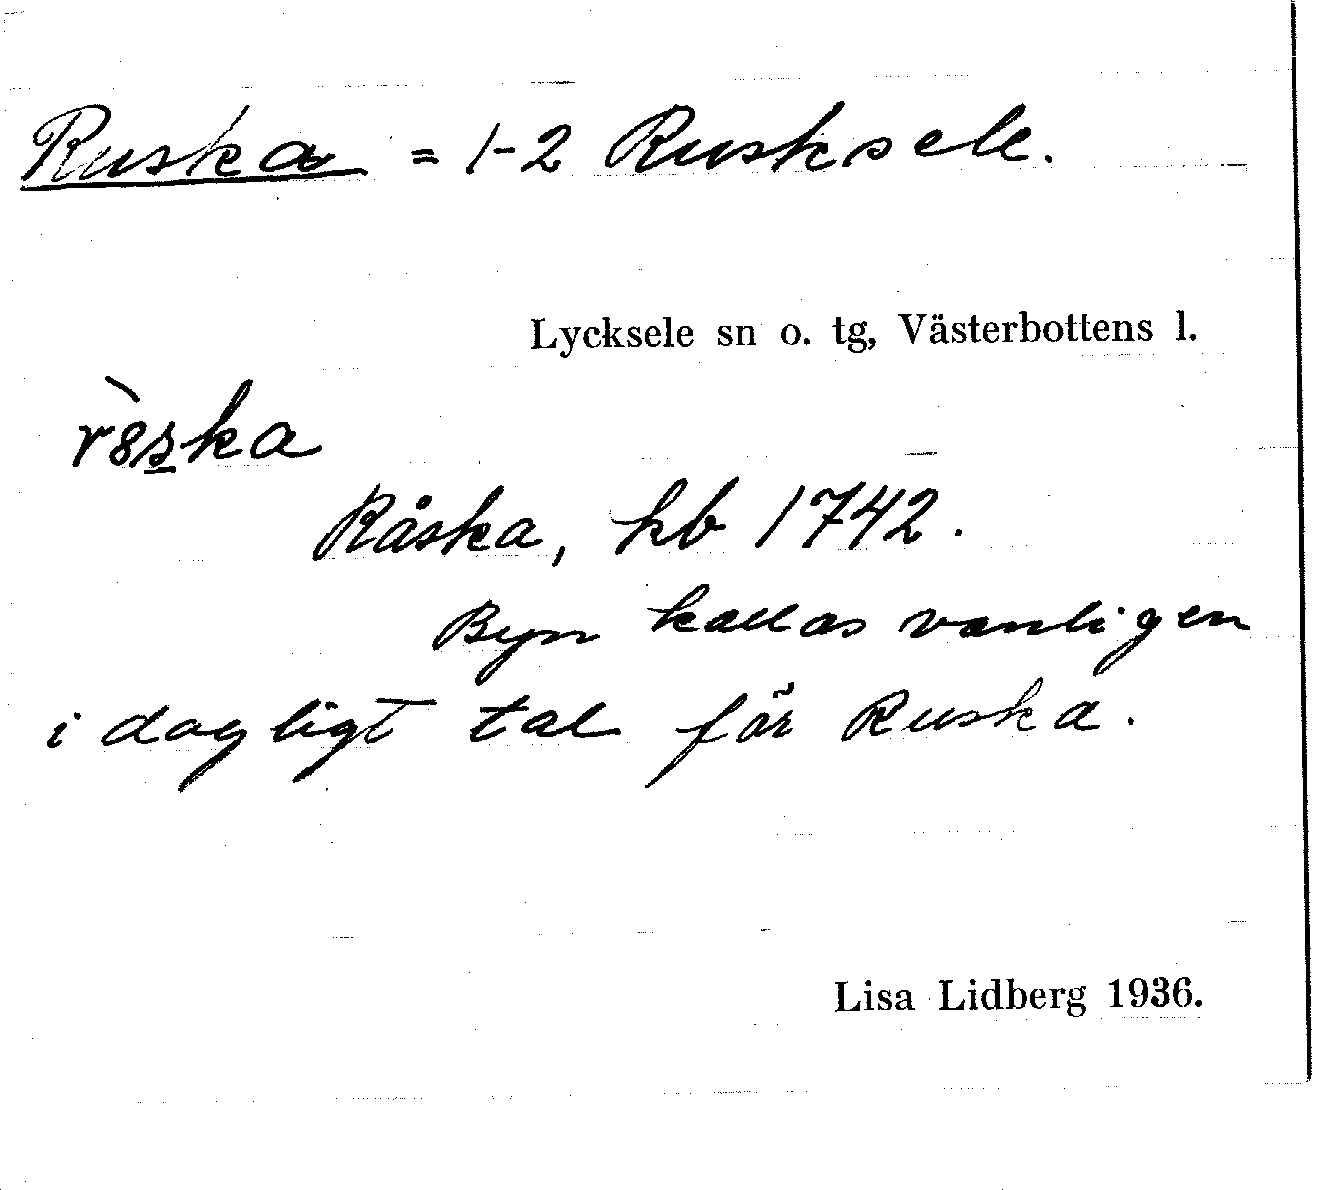 Ruska = 1-2 Rusksele.
Lycksele sn o. tg, Västerbottens l.
r8̀s̲ka
Råska, hb 1742.
Byn kallas vanligen
i dagligt tal för Ruska.
Lisa Lidberg 1936.